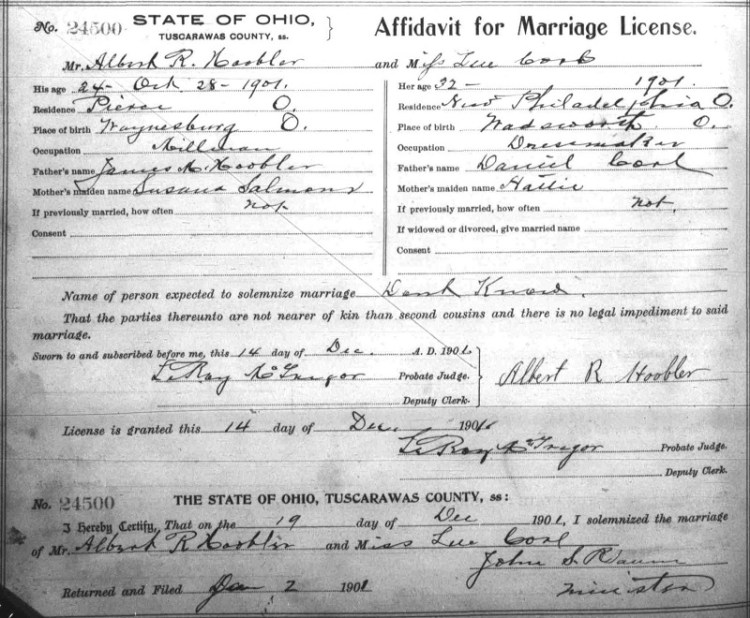 No. 24500 STATE OF OHIO, TUSCARAWAS COUNTY, ss. } Affidavit for Marriage License.
Mr. Albert R. Hoobler and Miss Lue Corl
His age 24 - Oct. 28 - 1901.
Residence Pierce O.
Place of birth Waynesburg O.
Occupation Millman
Father's name James M. Hoobler
Mother's maiden name Susana Salmons
If previously married, how often not
Consent
Her age 32 - 1901
Residence New Philadelphia O.
Place of birth Wadsworth O.
Occupation Dressmaker
Father's name Daniel Corl
Mother's maiden name Hattie
If previously married, how often not.
If widowed or divorced, give married name
Consent
Name of person expected to solemnize marriage Dont Know.
That the parties thereunto are not nearer of kin than second cousins and there is no legal impediment to said
marriage.
Sworn to and subscribed before me, this 14 day of Dec. A. D. 1901
LeRoy McGregor Probate Judge. } Albert R Hoobler
Deputy Clerk.
License is granted this 14 day of Dec. 1901
LeRoy McGregor Probate Judge.
Deputy Clerk.
No. 24500 THE STATE OF OHIO, TUSCARAWAS COUNTY, ss:
I Hereby Certify, That on the 19 day of Dec 1901, I solemnized the marriage
of Mr. Albert R Hoobler and Miss Lue Corl
John S.
Returned and Filed Jan 2 1901 minister